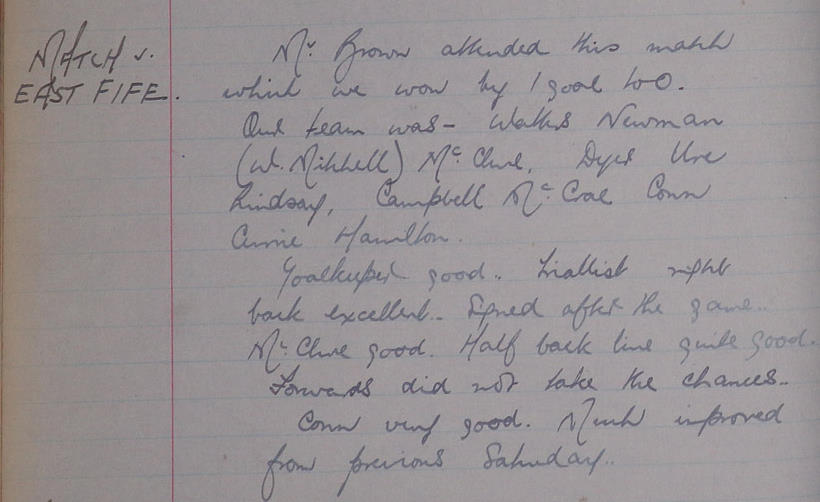 MATCH v.
EAST FIFE.
Mr Brown attended this match
which we won by 1 goal to 0.
Our team was - Walker Newman
(W. Mitchell) McClure, Dyer Ure
Lindsay, Campbell McCrae Conn
Currie Hamilton.
Goalkeeper good. Triallist right
back excellent. Signed after the game.
McClure good. Half back line quite good.
Forwards did not take the chances.
Conn very good. Much improved
from previous Saturday.